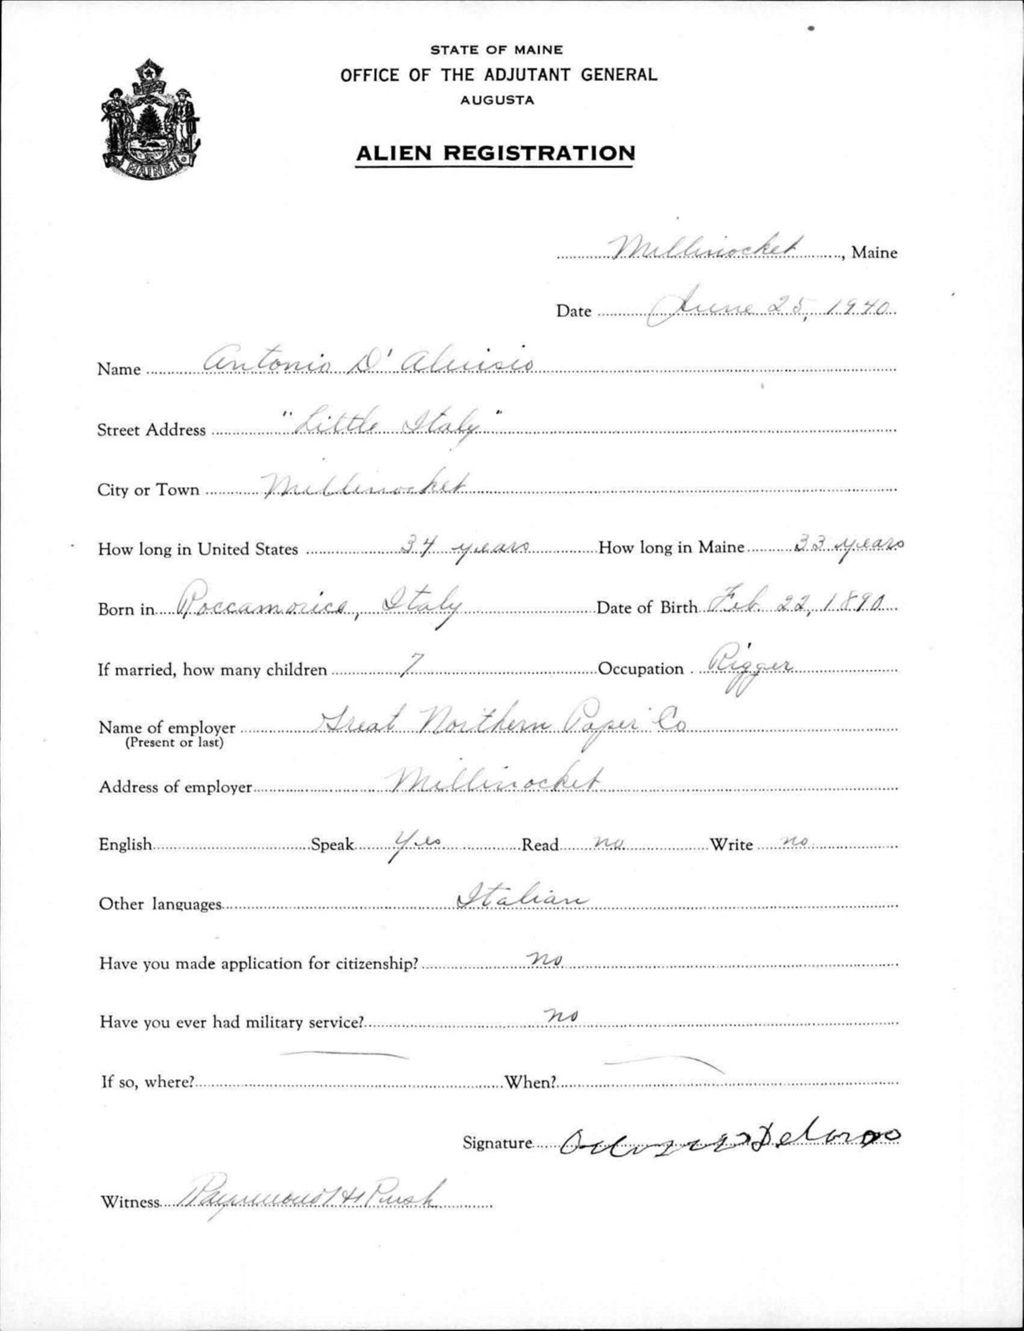 STATE OF MAINE
OFFICE OF THE ADJUTANT GENERAL
AUGUSTA
ALIEN REGISTRATION
MAINE
Millinocket, Maine
Date June 25, 1940
Name Antonio D'Aluisio
Street Address "Little Italy"
City or Town Millinocket
How long in United States 34 years How long in Maine 33 years
Born in Roccamorice, Italy Date of Birth Feb. 22, 1890
If married, how many children 7 Occupation Rigger
Name of employer Great Northern Paper Co
(Present or last)
Address of employer Millinocket
English Speak Yes Read no Write no
Other languages Italian
Have you made application for citizenship? no
Have you ever had military service? no
If so, where? When?
Signature
Witness Raymond H Rush